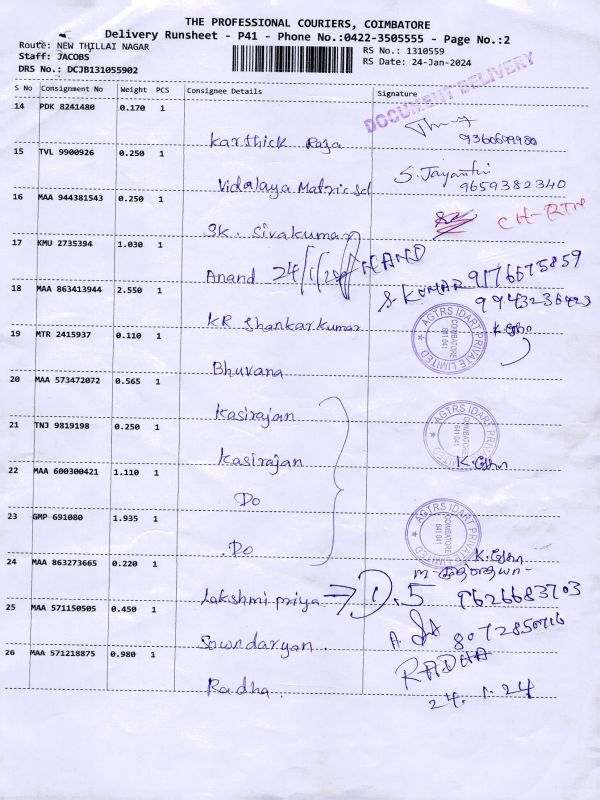 THE PROFESSIONAL COURIERS, COIMBATORE
Delivery Runsheet - P41 - Phone No.:0422-3505555 - Page No.:2
Route: NEW THILLAI NAGAR
Staff: JACOBS
DRS No.: DCJB131055902
RS No.: 1310559
RS Date: 24-Jan-2024
DOCUMENT DELIVERY
S No Consignment No Weight PCS Consignee Details Signature
14 PDK 8241480 0.170 1
Karthick Raja 9360699980
15 TVL 9900926 0.250 1
Vidalaya Matric Scl S. Jayanthi 9659382340
16 MAA 944381543 0.250 1
SK. Sivakumar CH-RTN
17 KMU 2735394 1.030 1
Anand ANAND
18 MAA 863413944 2.550 1
KR Shankarkumar S. KUMAR 9176675859
19 MTR 2415937 0.110 1
Bhuvana
AGTRS IDART PRIVATE LIMITED
COIMBATORE
641 041
20 MAA 573472072 0.565 1
Kasirajan
21 TNJ 9819198 0.250 1
Kasirajan
AGTRS IDART PRIVATE LIMITED
COIMBATORE
641 041
22 MAA 600300421 1.110 1
Do
23 GMP 691080 1.935 1
Do
AGTRS IDART PRIVATE LIMITED
COIMBATORE
641 041
24 MAA 863273665 0.220 1
Lakshmi priya → D.5 9626683703
25 MAA 571150505 0.450 1
Sowndaryan. 8072850716
26 MAA 571218875 0.980 1
Radha. RADHA
24.1.24